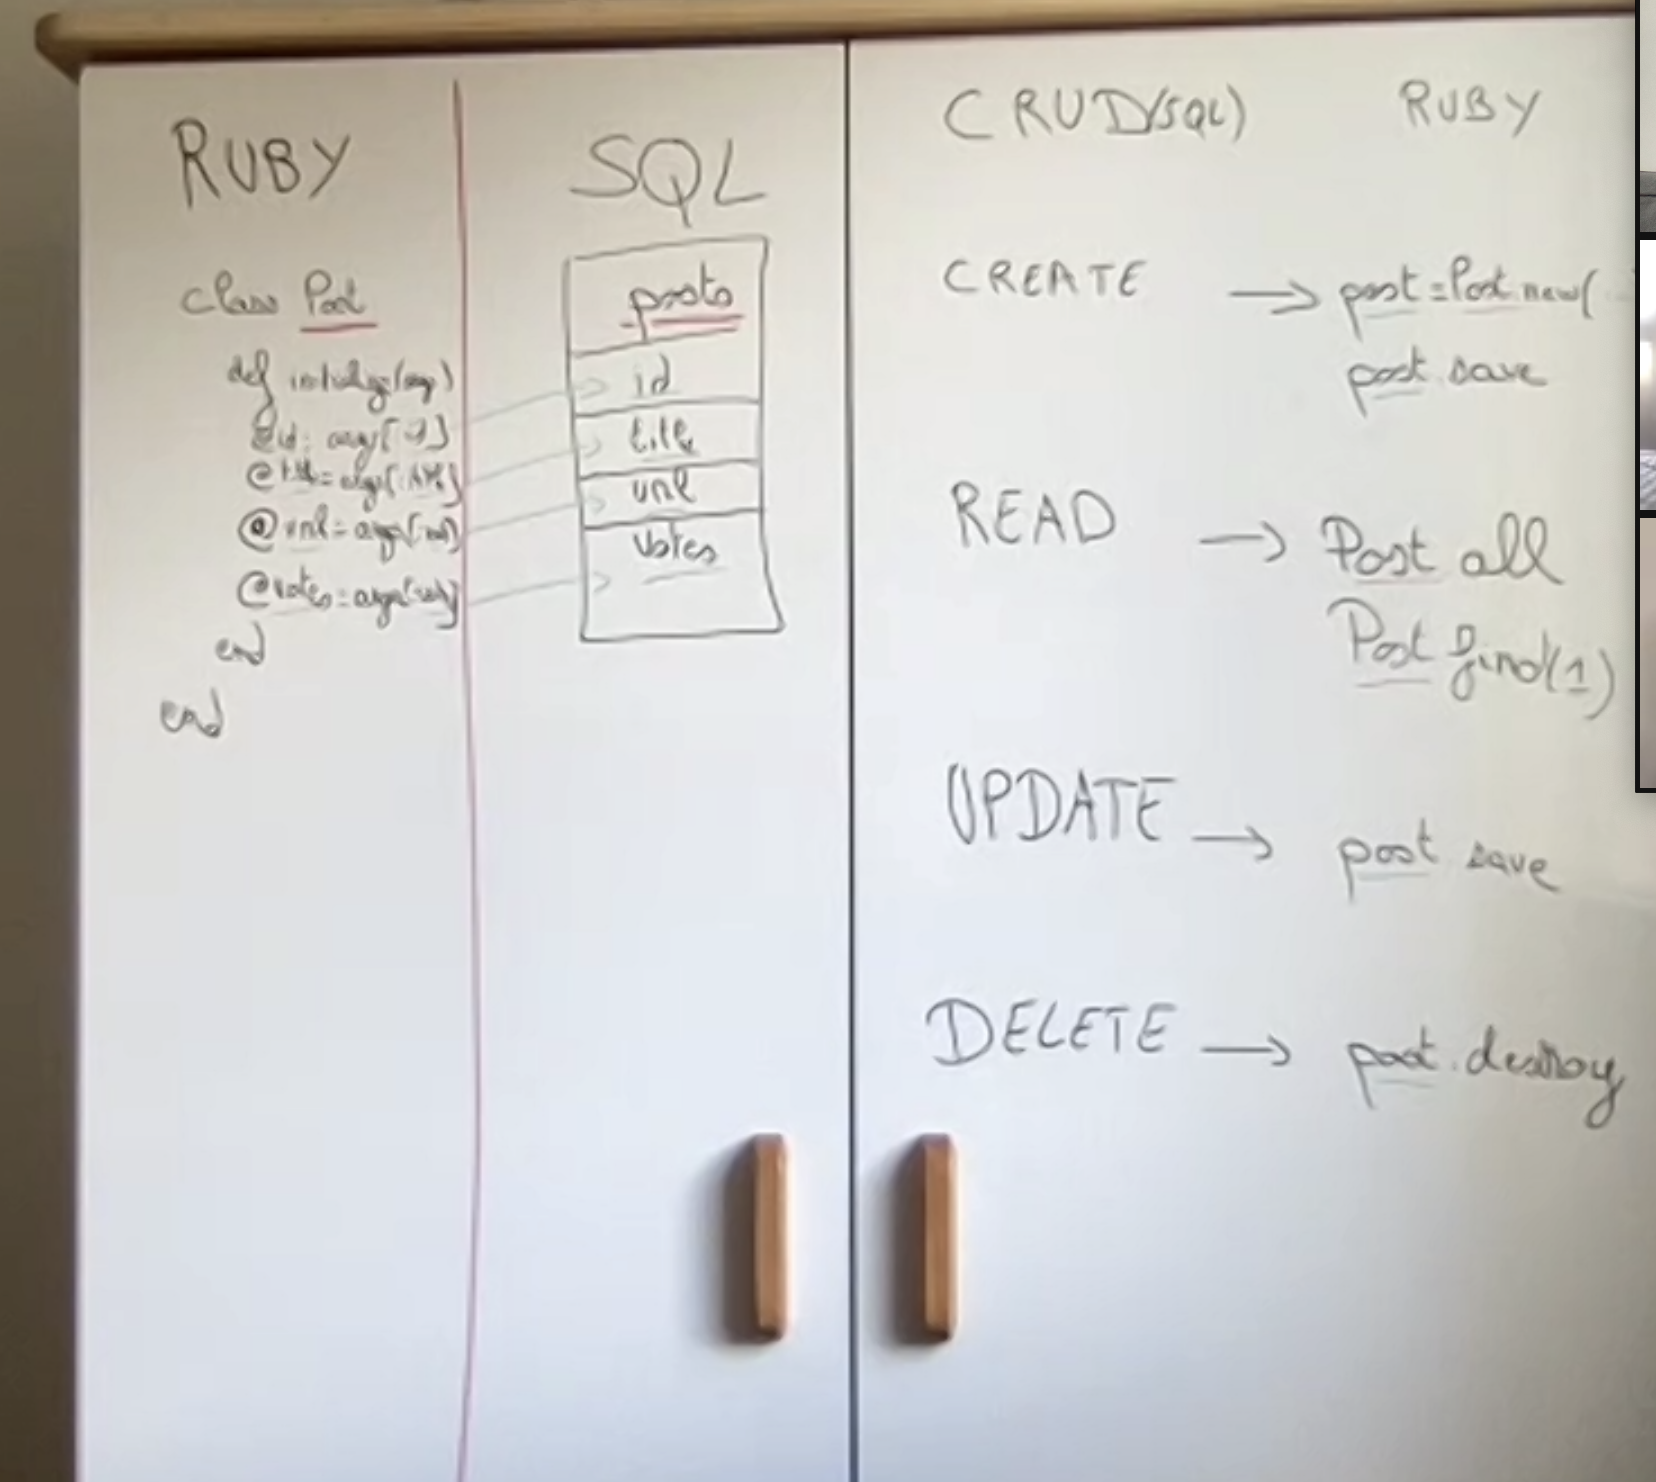 RUBY
class Post
def initialize(args)
@id = args[:id]
@title = args[:title]
@url = args[:url]
@votes = args[:votes]
end
end
SQL
posts
id
title
url
votes
CRUD(SQL) RUBY
CREATE → post = Post.new(
post.save
READ → Post.all
Post.find(1)
UPDATE → post.save
DELETE → post.destroy